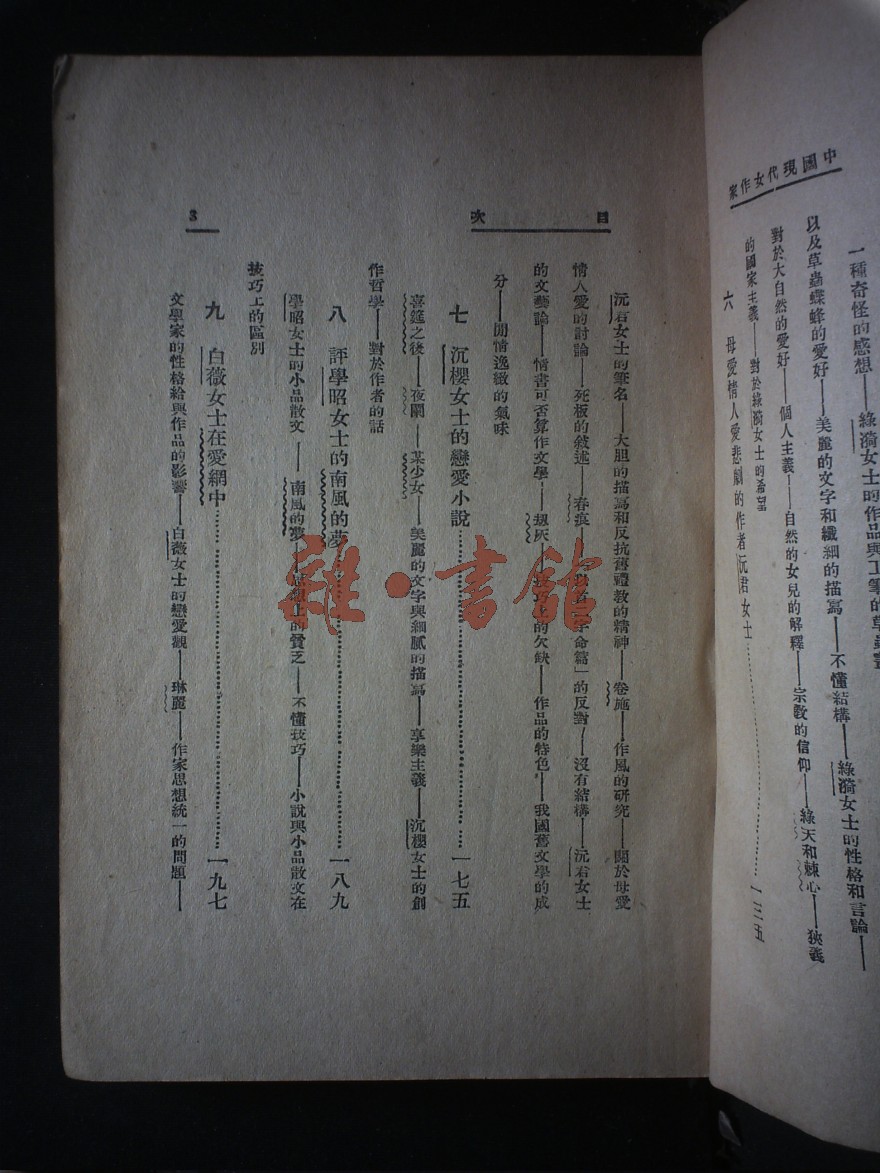 中國現代女作家
一種奇怪的感想——綠漪女士的作品與工筆的草蟲畫
以及草蟲蝶蜂的愛好——美麗的文字和纖細的描寫——不懂結構——綠漪女士的性格和言論——
對於大自然的愛好——個人主義——自然的女兒的解釋——宗教的信仰——綠天和棘心——狹義
的國家主義——對於綠漪女士的希望
六 母愛情人愛悲劇的作者沅君女士……一三五
目次
沅君女士的筆名——大胆的描寫和反抗舊禮教的精神——卷施——作風的研究——關於母愛
情人愛的討論——死板的敘述——春痕——「命篇」的反對——沒有結構——沅君女士
的文藝論——情書可否算作文學——刼灰——技巧上的欠缺——作品的特色——我國舊文學的成
分——閒情逸緻的氣味
七 沉櫻女士的戀愛小說……一七五
喜筵之後——夜闌——某少女——美麗的文字與細膩的描寫——享樂主義——沉櫻女士的創
作哲學——對於作者的話
八 評學昭女士的南風的夢……一八九
學昭女士的小品散文——南風的夢——思想上的貧乏——不懂技巧——小說與小品散文在
技巧上的區別
九 白薇女士在愛網中……一九七
文學家的性格給與作品的影響——白薇女士的戀愛觀——琳麗——作家思想統一的問題——
3
雜·書館